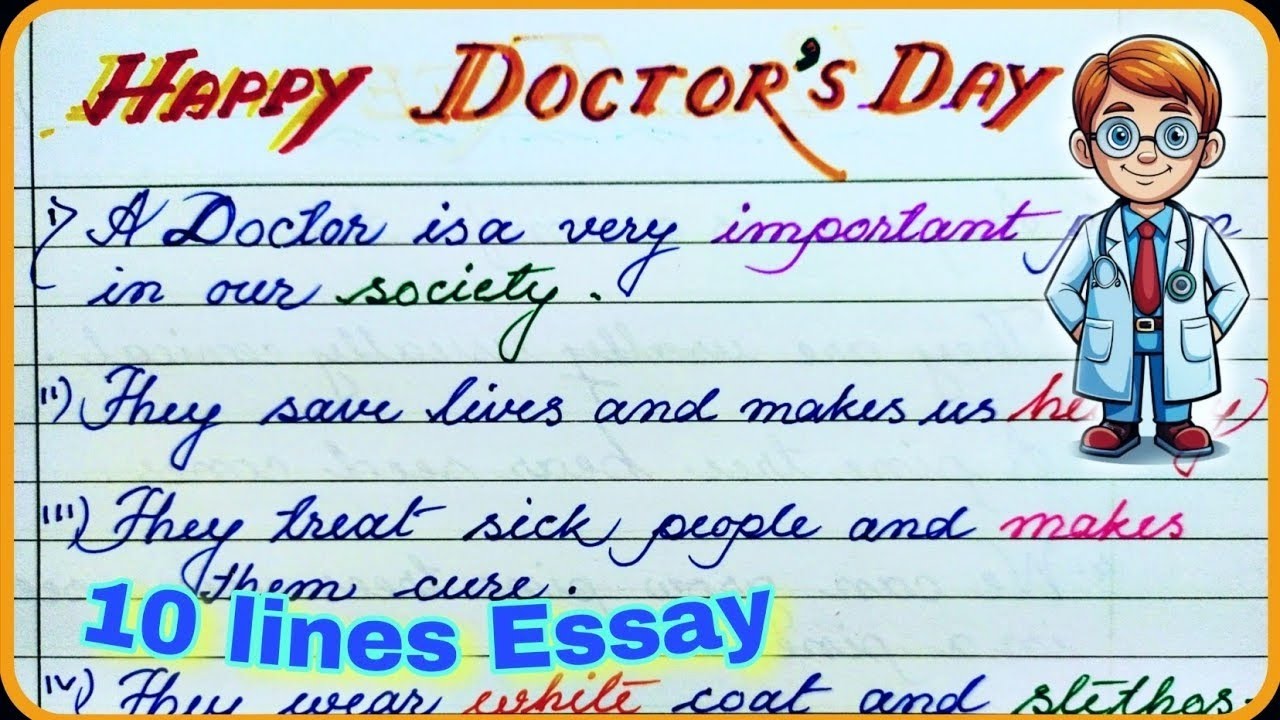 HAPPY DOCTOR'S DAY
i) A Doctor is a very important
in our society.
ii) They save lives and makes us
iii) They treat sick people and makes
them cure.
10 lines Essay
iv) They wear white coat and stethos-